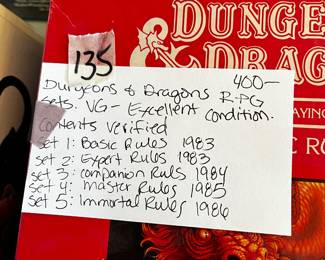 DUNGE
& DRAG
135
400-
Dungeons & Dragons R-PG
Sets. VG- Excellent Condition.
Contents verified
Set 1: Basic Rules 1983
Set 2: Expert Rules 1983
Set 3: companion Ruls 1984
Set 4: master Rules 1985
Set 5: Immortal Rules 1986
AYIN
C RO